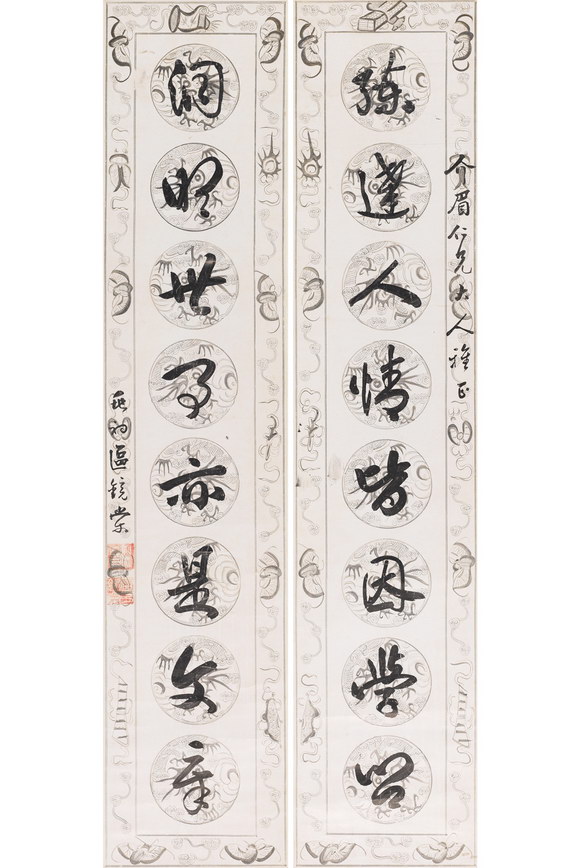 介眉仁兄大人雅正
練達人情皆因學問
洞明世事亦是文章
初區鏡棠